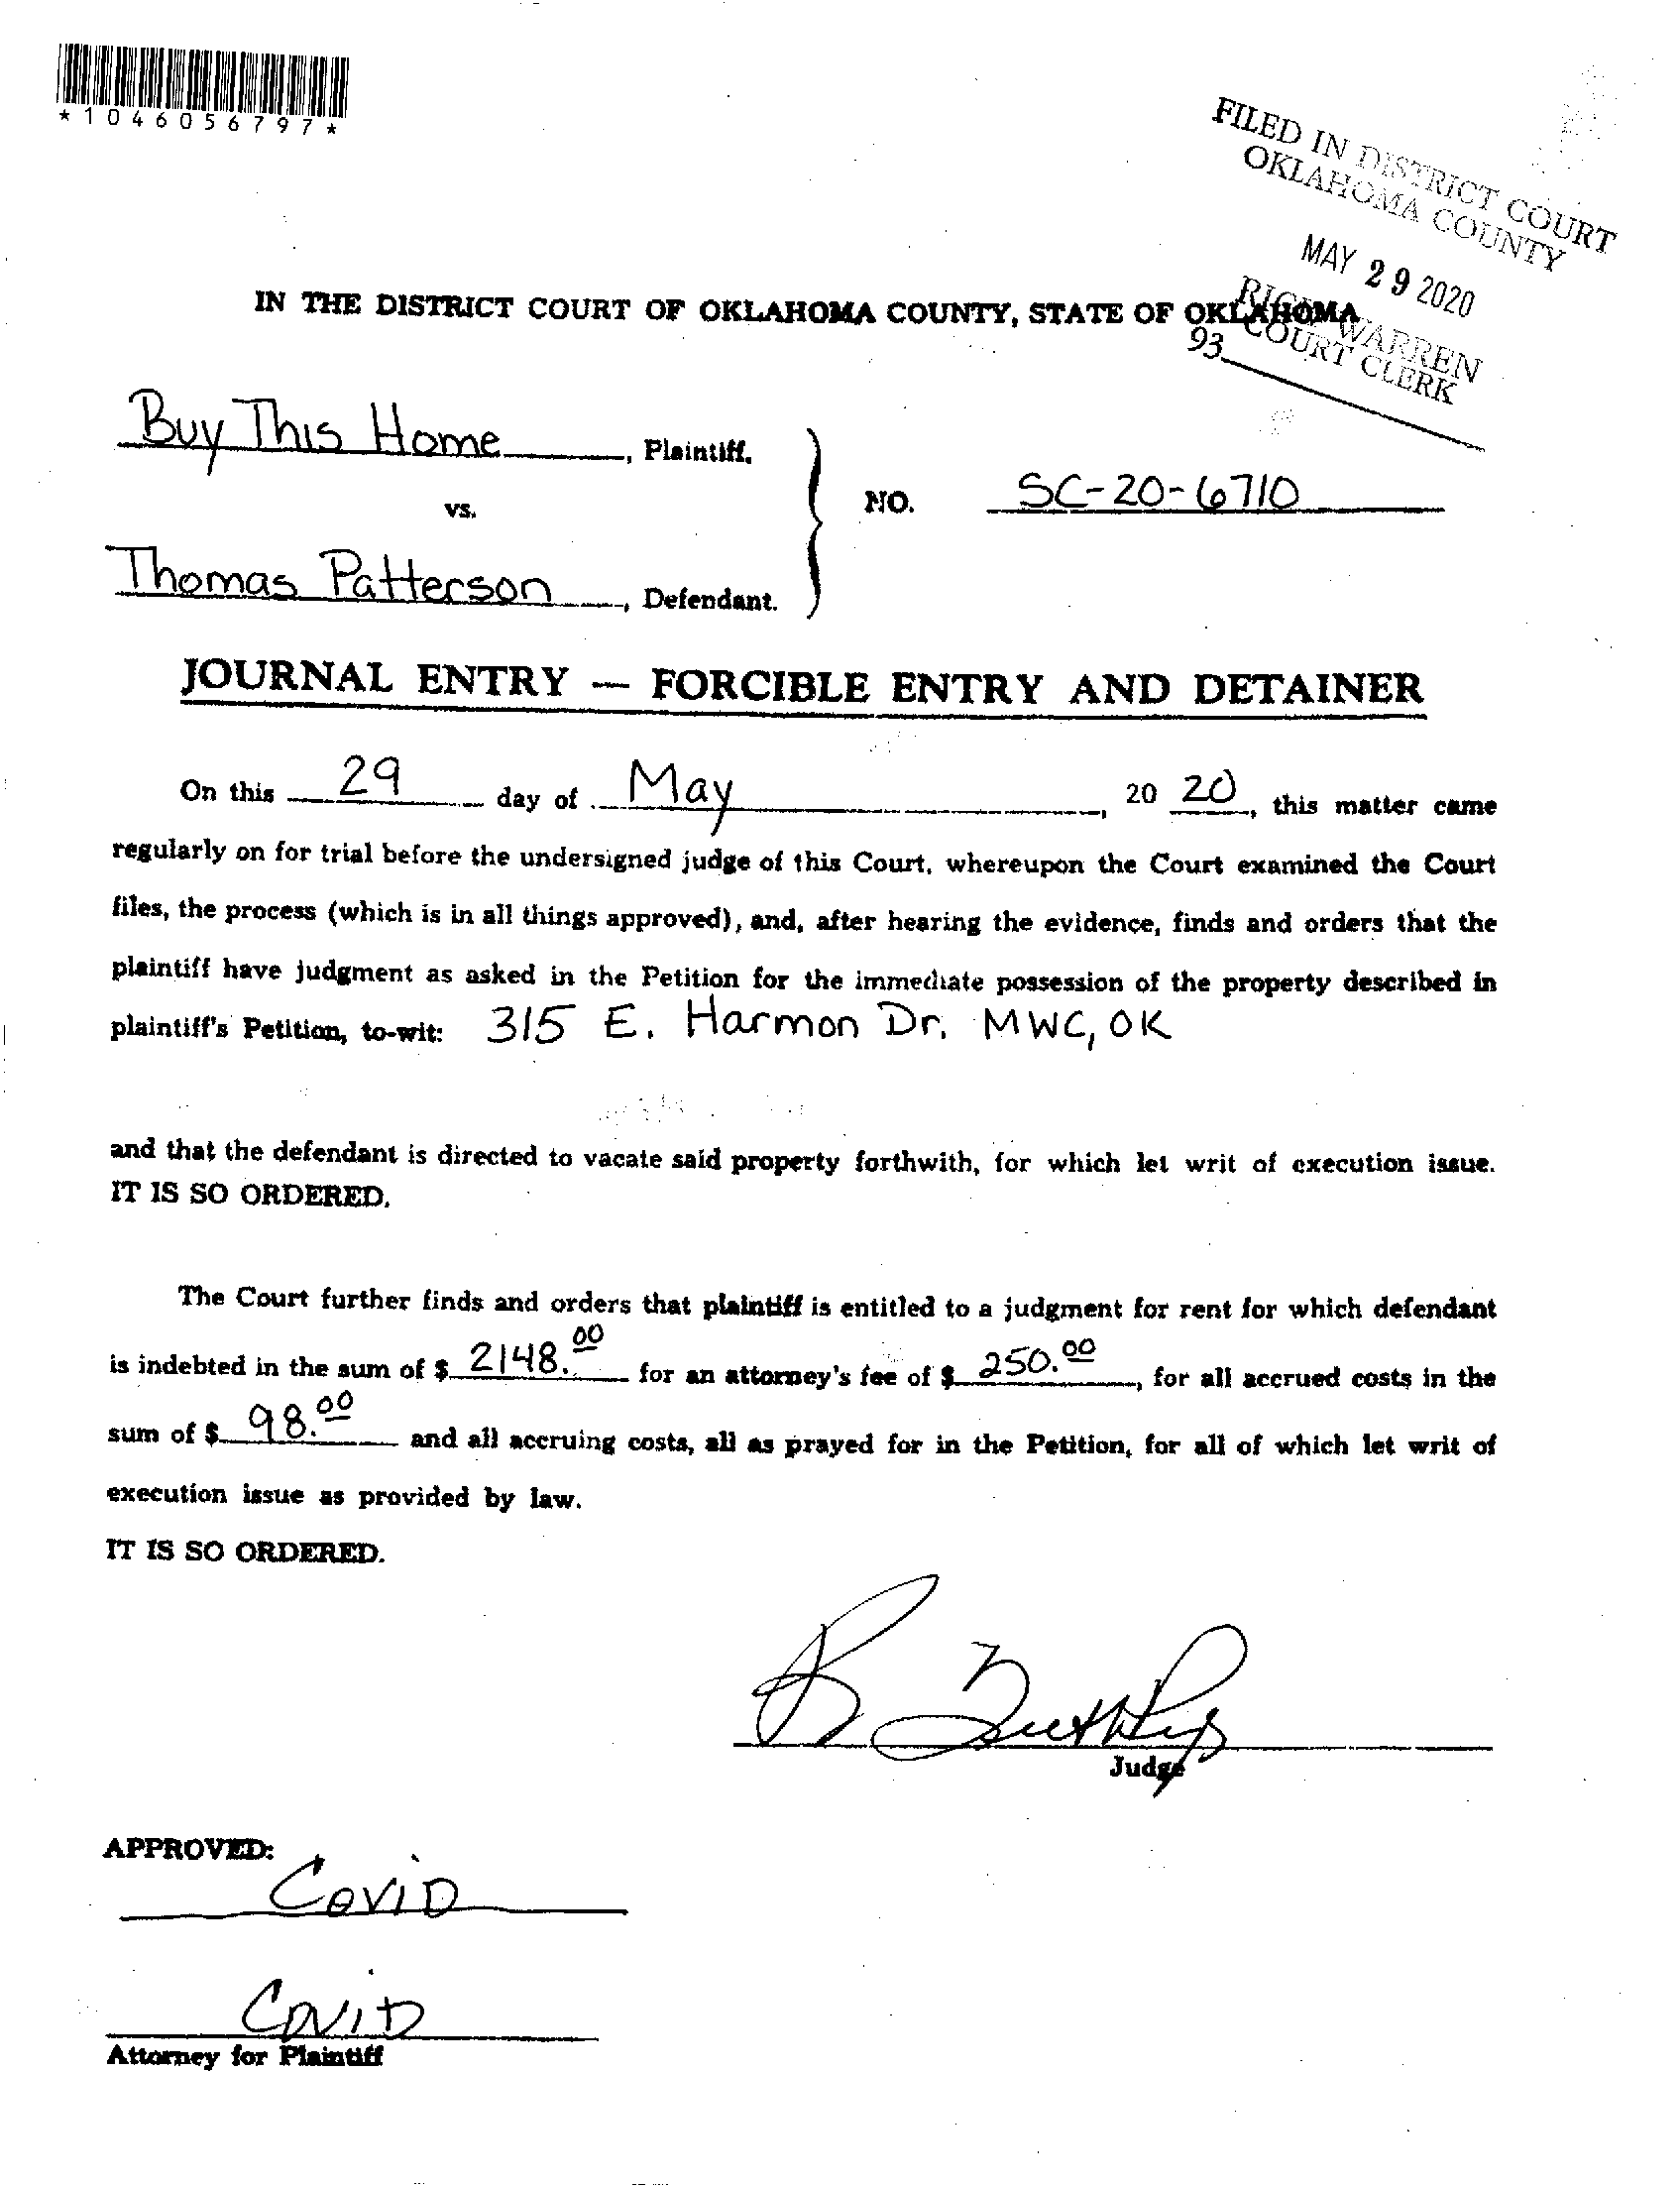 *1046056797*
FILED IN DISTRICT COURT
OKLAHOMA COUNTY
MAY 29 2020
RICK WARREN
COURT CLERK
93
IN THE DISTRICT COURT OF OKLAHOMA COUNTY, STATE OF OKLAHOMA
Buy This Home, Plaintiff,
vs.
NO. SC-20-6710
Thomas Patterson, Defendant.
JOURNAL ENTRY — FORCIBLE ENTRY AND DETAINER
On this 29 day of May, 20 20, this matter came
regularly on for trial before the undersigned judge of this Court, whereupon the Court examined the Court
files, the process (which is in all things approved), and, after hearing the evidence, finds and orders that the
plaintiff have judgment as asked in the Petition for the immediate possession of the property described in
plaintiff's Petition, to-wit: 315 E. Harmon Dr. MWC, OK
and that the defendant is directed to vacate said property forthwith, for which let writ of execution issue.
IT IS SO ORDERED.
The Court further finds and orders that plaintiff is entitled to a judgment for rent for which defendant
is indebted in the sum of $ 2148.00 for an attorney's fee of $ 250.00, for all accrued costs in the
sum of $ 98.00 and all accruing costs, all as prayed for in the Petition, for all of which let writ of
execution issue as provided by law.
IT IS SO ORDERED.
Judge
APPROVED:
COVID
COVID
Attorney for Plaintiff